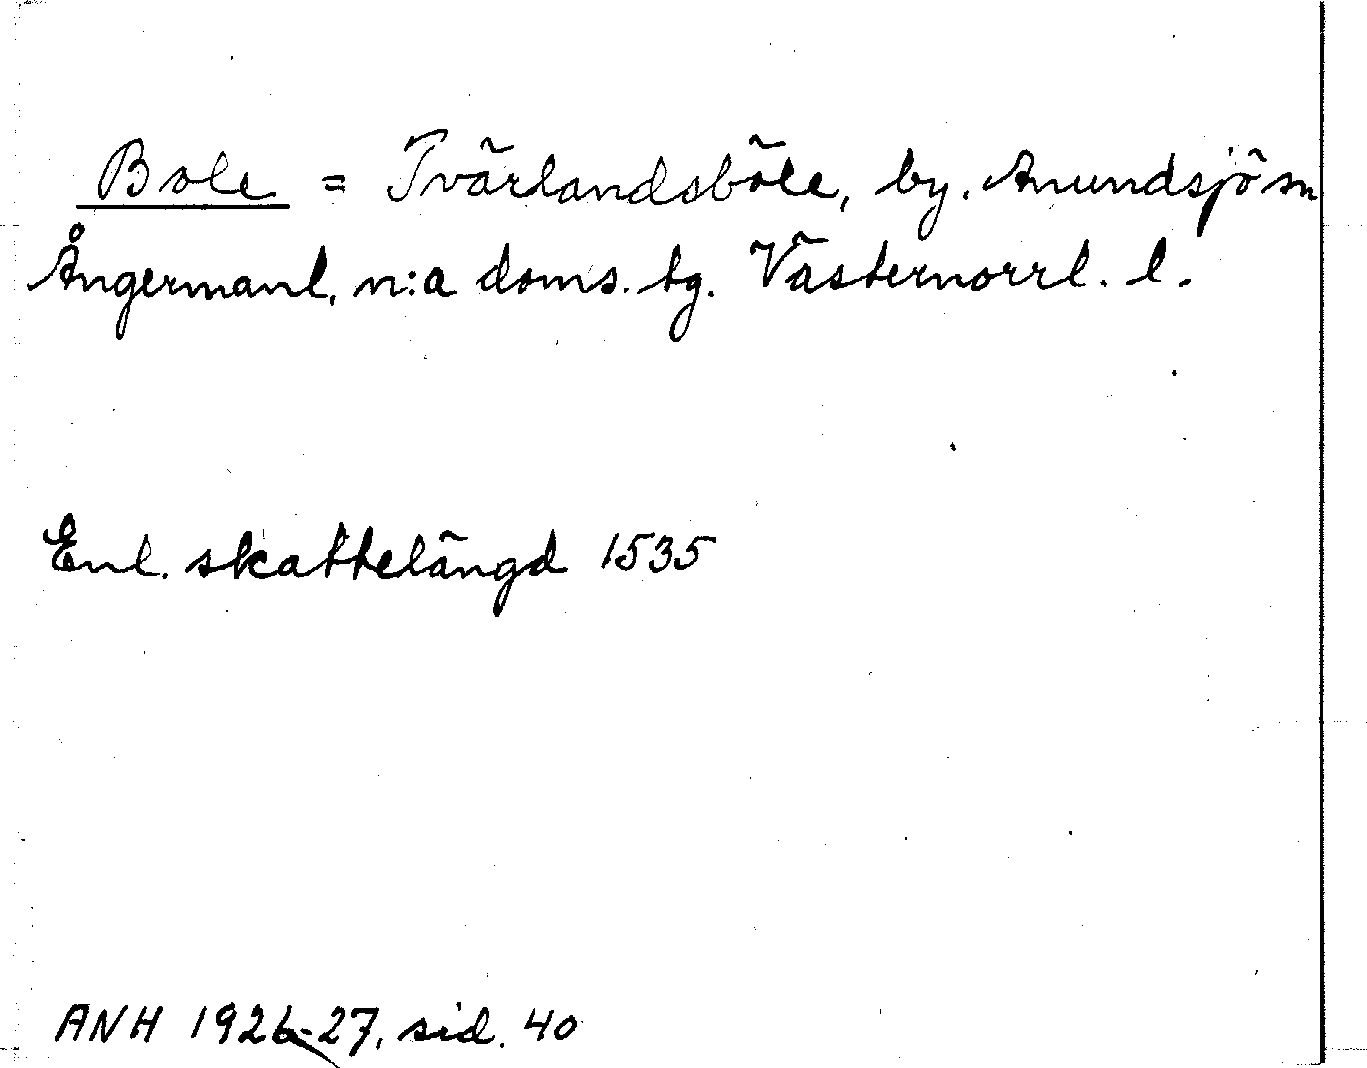 Bole = Tvärlandsböle, by. Anundsjö sn
Ångermanl. n:a doms. tg. Västernorrl. l.
Enl. skattelängd 1535
ANH 1926-27, sid. 40